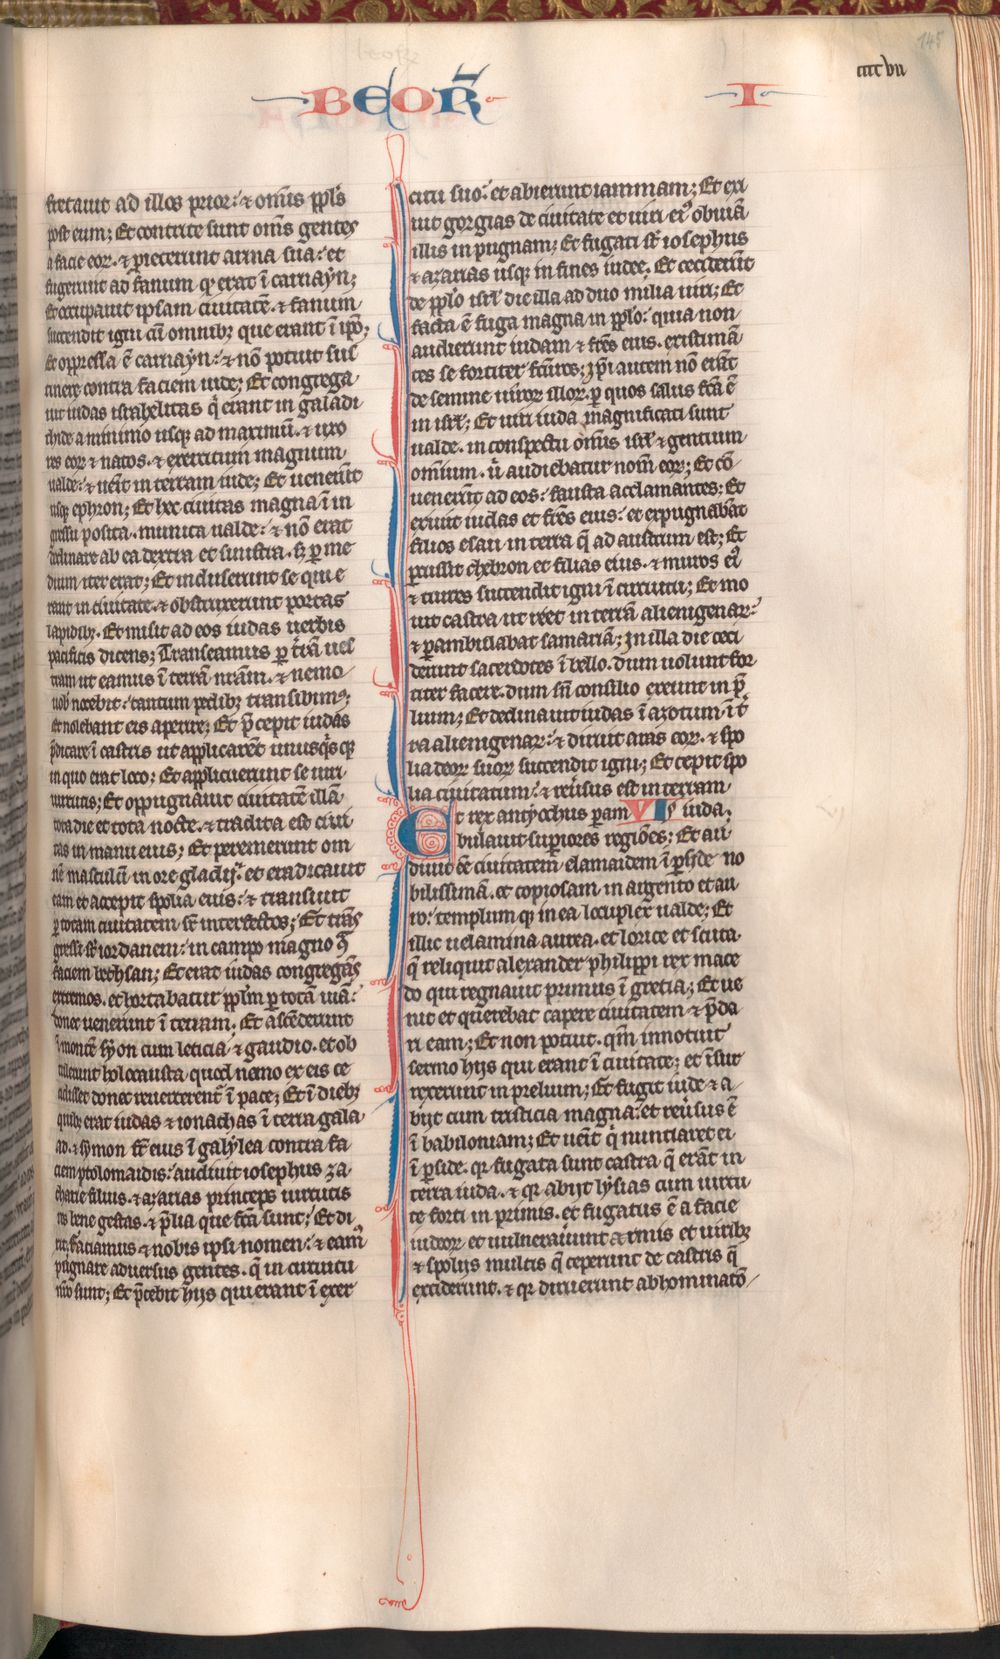 145
cccc vii
BEOR̄
I
fretauit ad illos prior: ⁊ om̄s pp̄ls
post eum; Et contrite sunt om̄s gentes
a facie eoꝝ. ⁊ ꝓiecerunt arma sua: et
fugerunt ad fanum qꝫ erat ī carnayn;
Et occupauit ipsam ciuitatē. ⁊ fanum
succendit igni cū omnibꝫ que erant ī ip̄o;
Et opp̄ressa ē carnayn: ⁊ nō potuit sus
tinere contra faciem iude; Et congrega
uit iudas israhelitas q̄ erant in galadi
thide a minimo usqꝫ ad maximū. ⁊ uxo
res eoꝝ ⁊ natos. ⁊ exercitum magnum
ualde: ⁊ uen̄t in terram iude; Et uenerūt
usqꝫ ephron; Et hec ciuitas magna ī in
gressu posita. munita ualde: ⁊ nō erat
declinare ab ea dextra et sinistra. sꝫ ꝑ me
dium iter erat; Et incluserunt se qui e
rant in ciuitate. ⁊ obstruxerunt portas
lapidibꝫ. Et misit ad eos iudas uerbis
pacificis dicens; Transeamus ꝑ t̄rā ues
tram ut eamus ī terrā nrām. ⁊ nemo
uob̄ nocebit: tantum pedibꝫ transibimꝰ;
Et nolebant eis aperire; Et p̄cepit iudas
p̄dicare ī castris ut applicarēt unusqͥsqꝫ
in quo erat loco: Et applicuerunt se uiri
uirtutis; Et oppugnauit ciuitatē illā
tota die et tota nocte. ⁊ tradita est ciui
tas in manu eius; Et peremerunt om
nē masculū in ore gladij: et eradicauit
eam et accepit spolia eius: ⁊ transiuit
ꝑ totam ciuitatem sr̄ interfectos; Et trās
gressi sr̄ iordanem: in campo magno 9̄
faciem bethsan; Et erat iudas congregās
extremos. et hortabatur pp̄lm ꝑ totā uiā:
donec uenerunt ī terram. Et ascēderunt
ī montē syon cum leticia ⁊ gaudio. et ob
tulerunt holocausta quod nemo ex eis ce
cidisset donec reuerterent̄ ī pace; Et ī diebꝫ
quibꝫ erat iudas ⁊ ionathas ī terra gala
ad. ⁊ symon fr̄ eius ī galylea contra fa
ciem ptolomaidis: audiuit iosephus za
charie filius. ⁊ azarias princeps uirtutis
res bene gestas. ⁊ p̄lia que fc̄a sunt; Et di
xit. faciamus ⁊ nobis ipsi nomen: ⁊ eam̄
pugnare aduersus gentes. q̄ in circuitu
nr̄o sunt; Et p̄cebit hijs qui erant ī exer
citu suo: et abierunt iamniam; Et exi
uit gorgias de ciuitate et uiri eiꝰ obuiā
illis in pugnam; Et fugati sr̄ iosephus
⁊ azarias usqꝫ in fines iudee. Et ceciderūt
de pp̄lo isrl̄ die illa ad duo milia uiri; Et
facta ē fuga magna in pp̄lo: quia non
audierunt iudam ⁊ fr̄es eius. existimā
tes se fortiter fc̄uros; Ip̄i autem nō erāt
de semine uiroꝝ illoꝝ. ꝑ quos salus fc̄a ē
in isrl̄; Et uiri iuda magnificati sunt
ualde. in conspectu om̄is isrl̄ ⁊ gentium
omnium. u̇ audiebatur nom̄ eoꝝ; Et cō
uenerūt ad eos: fausta acclamantes: Et
exiuit iudas et fr̄es eius: et expugnabāt
filios esau in terra q̄ ad austrum est; Et
ꝑcussit chebron et filias eius. ⁊ muros eiꝰ
⁊ turres succendit igni ī circuitu; Et mo
uit castra ut iret in terrā alienigenaꝝ:
⁊ ꝑambulabat samariā; In illa die ceci
derunt sacerdotes ī bello. dum uolunt for
titer facere. dum sn̄ consilio exeunt in p̄
lium; Et declinauit iudas ī azotum ī t̄
ra alienigenaꝝ: ⁊ diruit aras eoꝝ. ⁊ spo
lia deoꝝ suoꝝ succendit igni; Et cepit spo
lia ciuitatum: ⁊ reūsus est in terram
Et rex antyochus ꝑam VI iuda;
bulauit suꝑiores regiões; Et au
diuit eē ciuitatem̄ elimaidem ī ꝑside no
bilissimā. et copiosam in argento et au
ro: templum qꝫ in ea locuplex ualde; Et
illic uelamina aurea. et lorice et scuta.
q̄ reliquit alexander philippi rex mace
do qui regnauit primus ī gretia; Et ue
nit et querebat capere ciuitatem ⁊ p̄da
ri eam; Et non potuit. qm̄ innotuit
sermo hijs qui erant ī ciuitate; et īsur
rexerunt in prelium; Et fugit inde ⁊ a
bijt cum tristicia magna: et reūsus ē
ī babiloniam; Et uen̄t q̇ nuntiaret ei
ī ꝑside. qꝛ fugata sunt castra q̄ erāt in
terra iuda. ⁊ qꝛ abijt lysias cum uirtu
te forti in primis. et fugatus ē a facie
iudeoꝝ et inualuerunt armis et uiribꝫ
⁊ spolijs multis q̄ ceperunt de castris q̄
exciderunt. ⁊ qꝛ diruerunt abhominatō